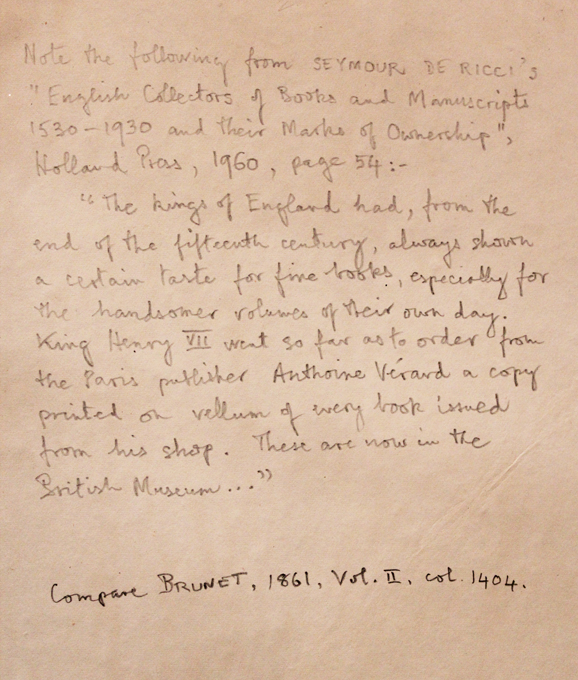 Note the following from SEYMOUR DE RICCI's
"English Collectors of Books and Manuscripts
1530-1930 and their Marks of Ownership",
Holland Press, 1960, page 54:-
"The kings of England had, from the
end of the fifteenth century, always shown
a certain taste for fine books, especially for
the handsomer volumes of their own day.
King Henry VII went so far as to order from
the Paris publisher Anthoine Vérard a copy
printed on vellum of every book issued
from his shop. These are now in the
British Museum..."
Compare BRUNET, 1861, Vol. II, col. 1404.